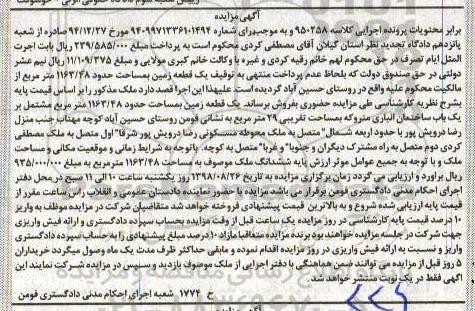 آگهی مزایده
برابر محتویات پرونده اجرایی کلاسه ۹۵۰۲۵۸ و به موجب رای شماره ۹۴۰۹۹۷۱۳۳۶۱۰۱۴۹۴ مورخ ۹۴/۱۲/۲۷ صادره از شعبه
پانزدهم دادگاه تجدید نظر استان گیلان آقای مصطفی کردی محکوم است به پرداخت مبلغ ۲۳۹/۵۸۵/۰۰۰ ریال بابت اجرت
المثل ایام تصرف در حق محکوم لهم خانم رقیه کردی و غیره با وکالت خانم کبری مولایی و مبلغ ۱۱/۱۰۹/۳۷۵ ریال نیم عشر
دولتی در حق صندوق دولت که بلحاظ عدم پرداخت منتهی به توقیف یک قطعه زمین بمساحت حدود ۱۱۶۳/۴۸ متر مربع از
مالکیت محکوم علیه واقع در روستای حسین آباد گردیده است علیهذا این اجرا قصد دارد ملک مذکور را بر اساس قیمت پایه
بشرح نظریه کارشناسی طی مزایده حضوری بفروش برساند. یک قطعه زمین بمساحت حدود ۱۱۶۳/۴۸ متر مربع مشتمل بر
یک باب ساختمان انباری متروکه بمساحت تقریبی ۲۹ متر مربع به نشانی فومن روستای حسین آباد کوچه مهتاب جنب منزل
رضا درویش پور با حدود اربعه شمال "متصل به ملک محوطه مسکونی رضا درویش پور شرقا" اول متصل به ملک مصطفی
کردی دوم متصل به راه مشترک دیگران و جنوبا" و غربا" متصل به کوچه. باتوجه به شرایط زمانی و موقعیت مکانی و مساحت
ملک و با توجه به جمیع عوامل موثر ارزش پایه ششدانگ ملک موصوف به مساحت ۱۱۶۳/۴۸ مترمربع به مبلغ ۹۳۵/۰۰۰/۰۰۰
ریال براورد و ارزیابی می گردد زمان برگزاری مزایده به تاریخ ۱۳۹۸/۰۸/۲۶ روز یکشنبه ساعت ۱۰ الی ۱۱ صبح در محل دفتر
اجرای احکام مدنی دادگستری فومن برقرار می باشد مزایده با حضور نماینده دادستان عمومی و انقلاب راس ساعت مقرر از
قیمت پایه ارزیابی شده شروع و به بالاترین قیمت پیشنهادی فروخته خواهد شد متقاضیان شرکت در مزایده موظف به واریز
۱۰ درصد قیمت پایه کارشناسی در روز مزایده یک ساعت قبل از وقت مزایده بحساب سپرده دادگستری و ارائه فیش واریزی
جهت شرکت در جلسه مزایده خواهند بود برنده مزایده متعاقبا مازاد ۱۰ درصد مبلغ پیشنهادی را به حساب سپرده دادگستری
واریز و نسبت به ارائه فیش واریزی در روز مزایده اقدام نموده و مابقی حداکثر ظرف مدت یک ماه وصول میگردد خریداران
۵ روز قبل از مزایده می توانند ضمن هماهنگی با دفتر اجرایی از ملک موصوف بازدید و سپس در مزایده شرکت نمایند این
آگهی فقط در یک نوبت منتشر خواهد شد.
ح ۱۷۷۴ شعبه اجرای احکام مدنی دادگستری فومن